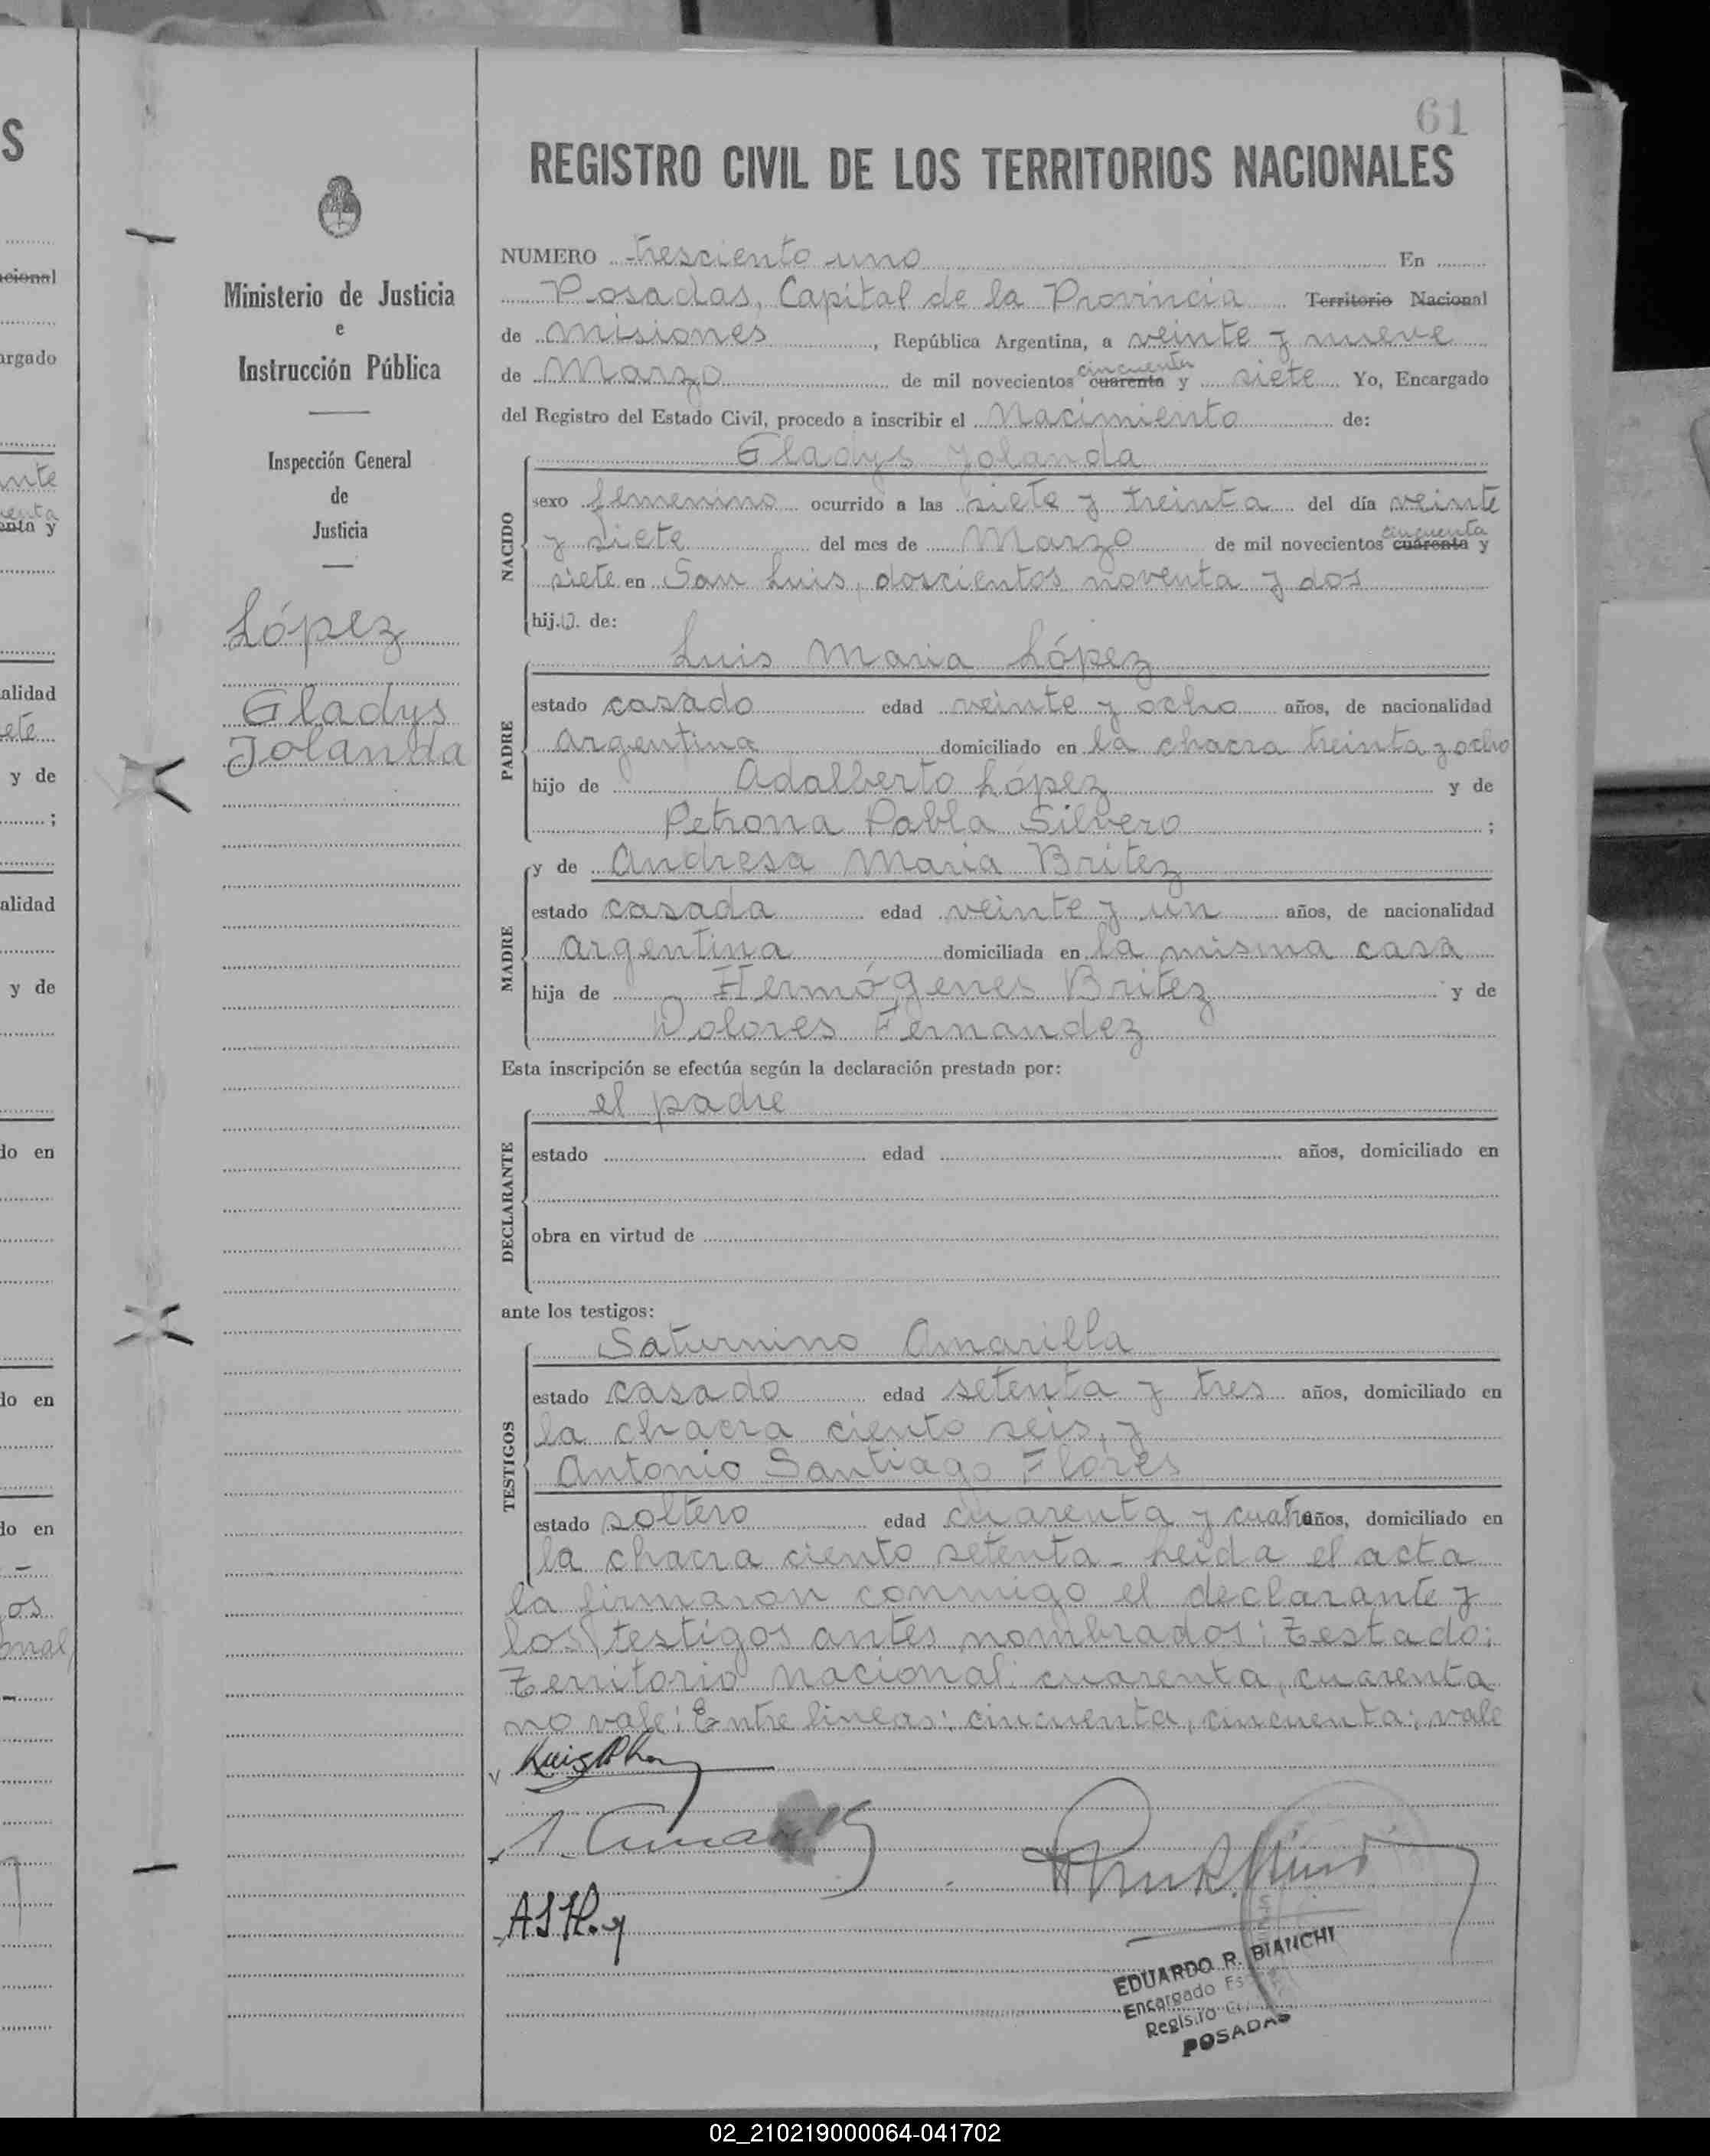 61
REGISTRO CIVIL DE LOS TERRITORIOS NACIONALES
Ministerio de Justicia
e
Instrucción Pública
Inspección General
de
Justicia
López
Gladys
Jolanda
NUMERO tresciento uno En
Posadas, Capital de la Provincia Territorio Nacional
de Misiones, República Argentina, a veinte y nueve
de Marzo de mil novecientos cuarenta cincuenta y siete Yo, Encargado
del Registro del Estado Civil, procedo a inscribir el Nacimiento de:
Gladys Jolanda
NACIDO
sexo femenino ocurrido a las siete y treinta del día veinte
y siete del mes de Marzo de mil novecientos cuarenta cincuenta y
siete en San Luis, doscientos noventa y dos
hij.a. de:
PADRE
Luis Maria López
estado casado edad veinte y ocho años, de nacionalidad
argentina domiciliado en la chacra treinta y ocho
hijo de Adalberto López y de
Petrona Pabla Silvero ;
MADRE
y de Andresa Maria Britez
estado casada edad veinte y un años, de nacionalidad
argentina domiciliada en la misma casa
hija de Hermógenes Britez y de
Dolores Fernandez
Esta inscripción se efectúa según la declaración prestada por:
DECLARANTE
el padre
estado edad años, domiciliado en
obra en virtud de
ante los testigos:
TESTIGOS
Saturnino Amarilla
estado casado edad setenta y tres años, domiciliado en
la chacra ciento seis, y
Antonio Santiago Flores
estado soltero edad cuarenta y cuatro años, domiciliado en
la chacra ciento setenta - Leida el acta
la firmaron conmigo el declarante y
los testigos antes nombrados: Testado:
Territorio Nacional: cuarenta, cuarenta
no vale: Entre lineas: cincuenta, cincuenta: vale
EDUARDO R. BIANCHI
Encargado
POSADAS
02_210219000064-041702